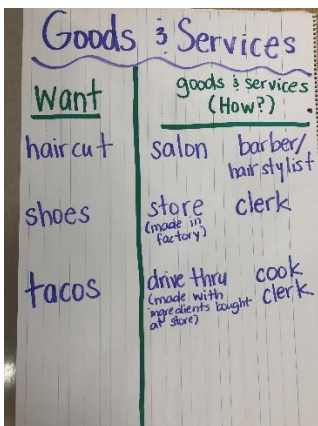 Goods & Services
Want
goods & services
(How?)
haircut
salon
barber/
hairstylist
shoes
store
(made in
factory)
clerk
tacos
drive thru
(made with
ingredients bought
at store)
cook
clerk